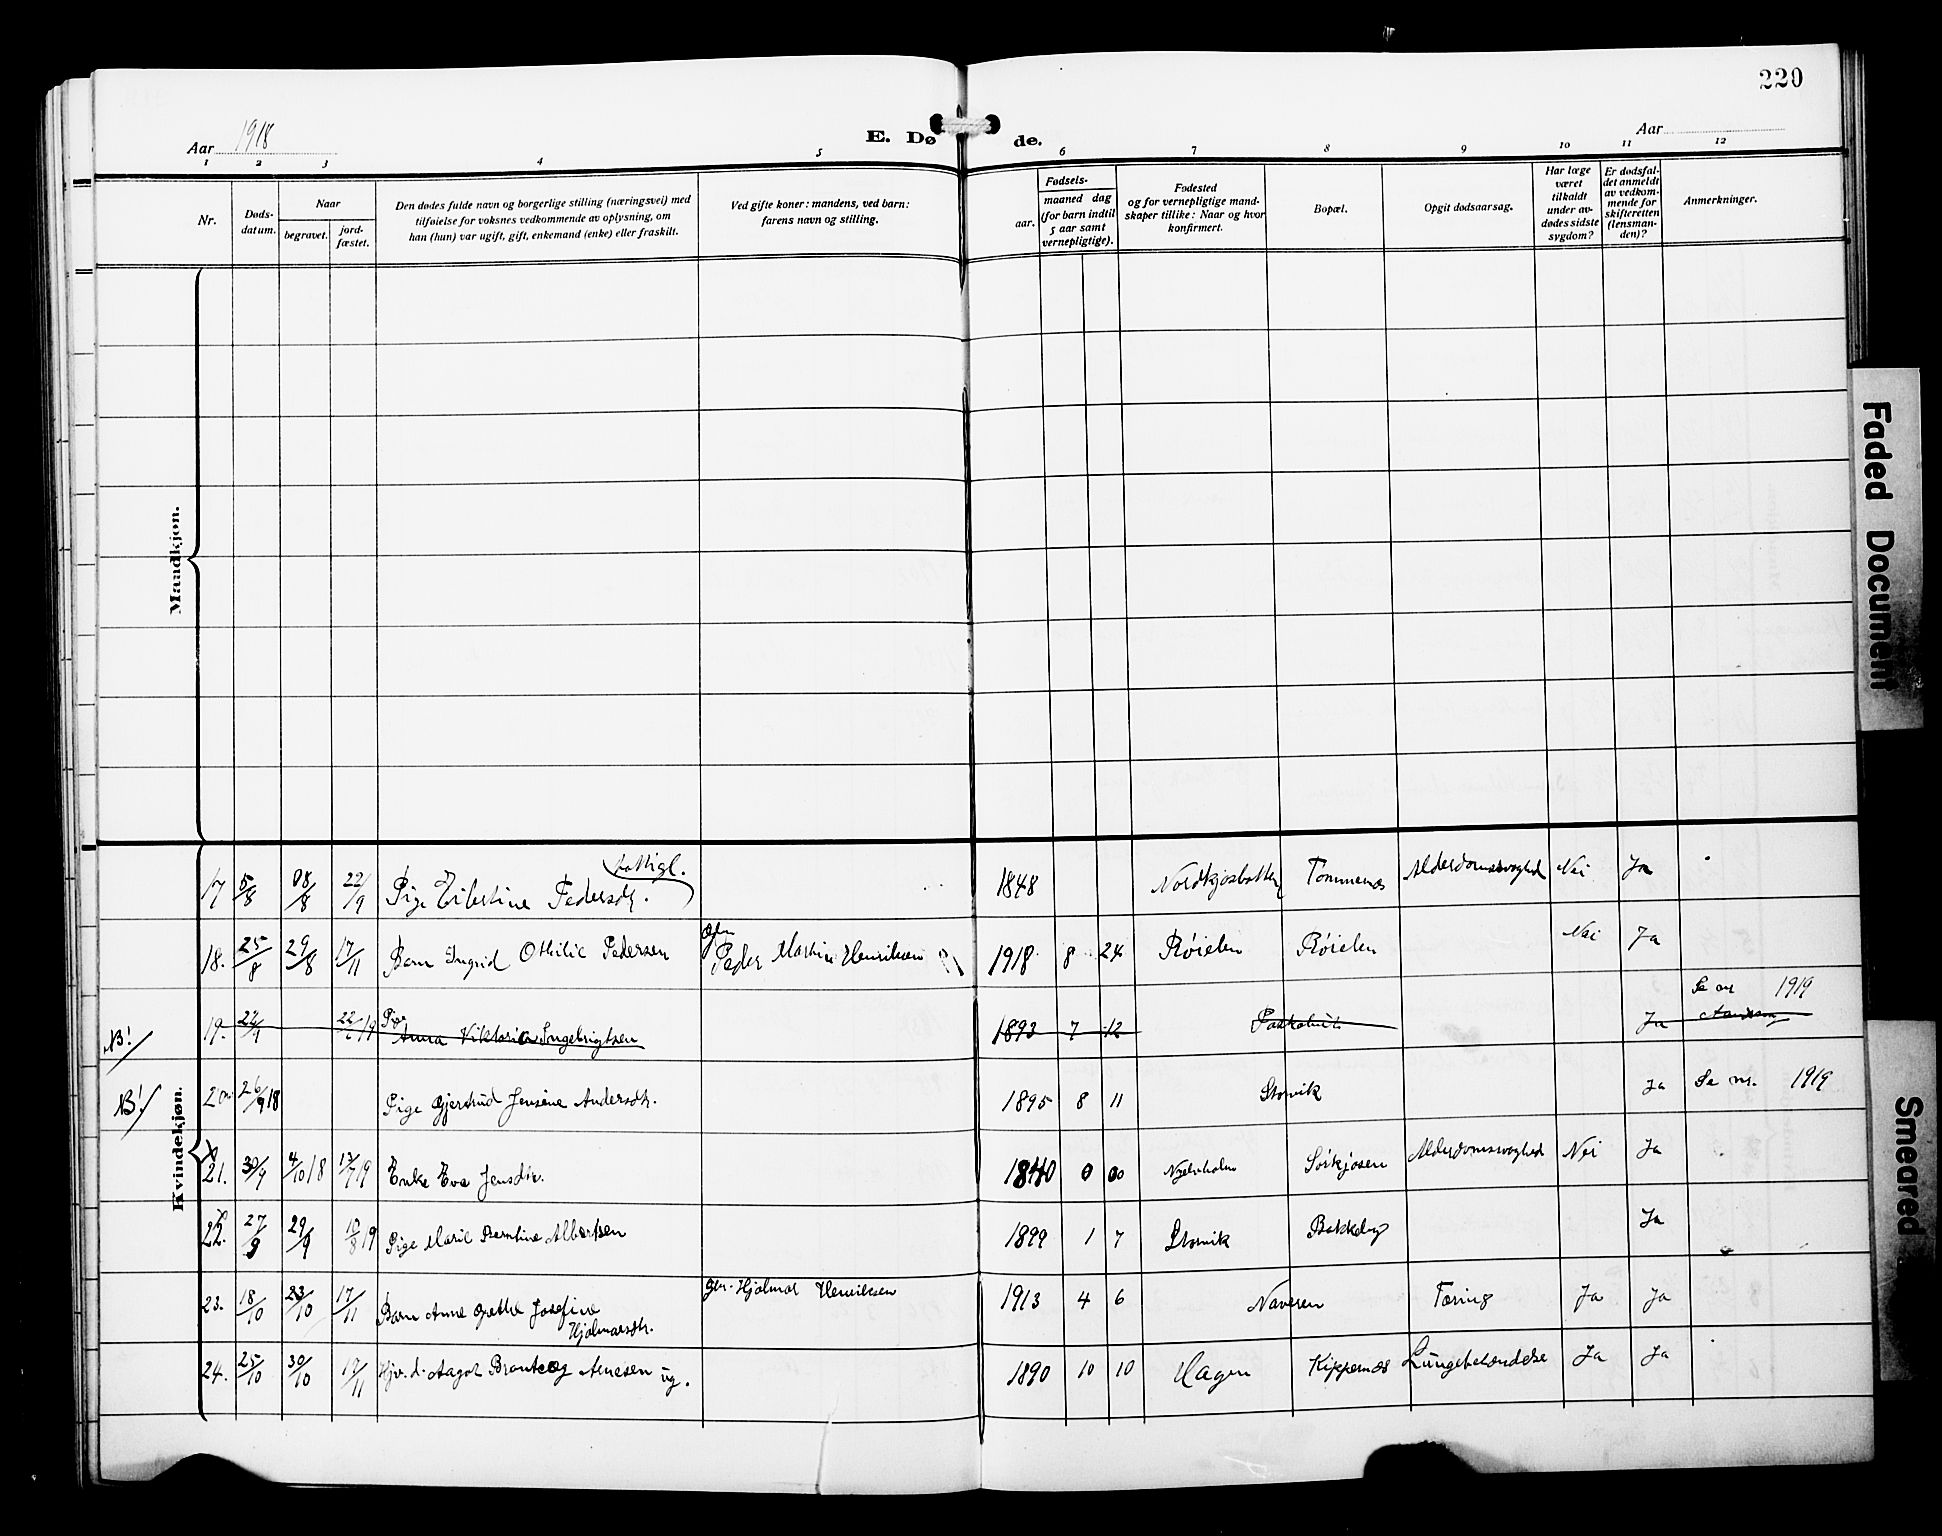 220
Aar 1918
E. Dø de.
Aar
1 2 3 4 5 6 7 8 9 10 11 12
Nr.
Døds-
datum.
Naar
begravet.
jord-
fæstet.
Den dødes fulde navn og borgerlige stilling (næringsvei) med
tilføielse for voksnes vedkommende av oplysning, om
han (hun) var ugift, gift, enkemand (enke) eller fraskilt.
Ved gifte koner: mandens, ved barn:
farens navn og stilling.
Fødsels-
aar.
maaned dag
(for barn indtil
5 aar samt
vernepligtige).
Fødested
og for vernepligtige mand-
skaper tillike: Naar og hvor
konfirmert.
Bopæl.
Opgit dødsaarsag.
Har læge
været
tilkaldt
under av-
dødes sidste
sygdom?
Er dødsfal-
det anmeldt
av vedkom-
mende for
skifteretten
(lensman-
den)?
Anmerkninger.
Mandkjøn.
Kvindekjøn.
fattigl.
17 5/8 08/8 22/9 Pige Pedersdtr. 1848 Nordkjosbotten Tommernes Alderdomssvaghed Nei Ja
18. 25/8 29/8 17/11 Barn Ingrid Othilie Pedersen Peder Martin Henriksen 1918 8 24 Røielen Røielen Nei Ja
Se nr 1919
N.B! 19. Pige Anna Viktoria Ingebrigtsen 1893 7 12 Ja
N.B! 20. 26/9 18 Pige Gjertrud Jensine Andersdtr. 1895 8 11 Storvik Ja Se nr. 1919
21. 30/9 4/10 18 Enke Eva Jensdtr. 1840 0 00 Sørkjosen Alderdomssvaghed Nei Ja
22. 27/9 29/9 10/8 19 Pige Marie Berntine Albertsen 1899 1 7 Storvik Bakkeby Ja
23. 18/10 23/10 17/11 Barn Anne Grethe Josefine
Hjalmarsdtr. Hjalmar Henriksen 1913 4 6 Naveren Tæring Ja Ja
24. 25/10 30/10 17/11 Aagot Arnesen ug. 1890 10 10 Hagen Kippernes Lungebetændelse Ja Ja
Faded Document
Smeared